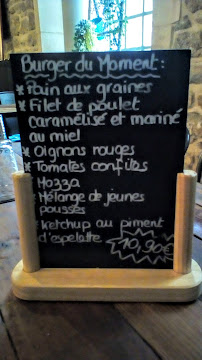 Burger du Moment :
* Pain aux graines
* Filet de poulet
caramélisé et mariné
au miel
* Oignons rouges
* Tomates confites
* Mozza
* Mélange de jeunes
pousses
* Ketchup au piment
d'espelette
10,90€